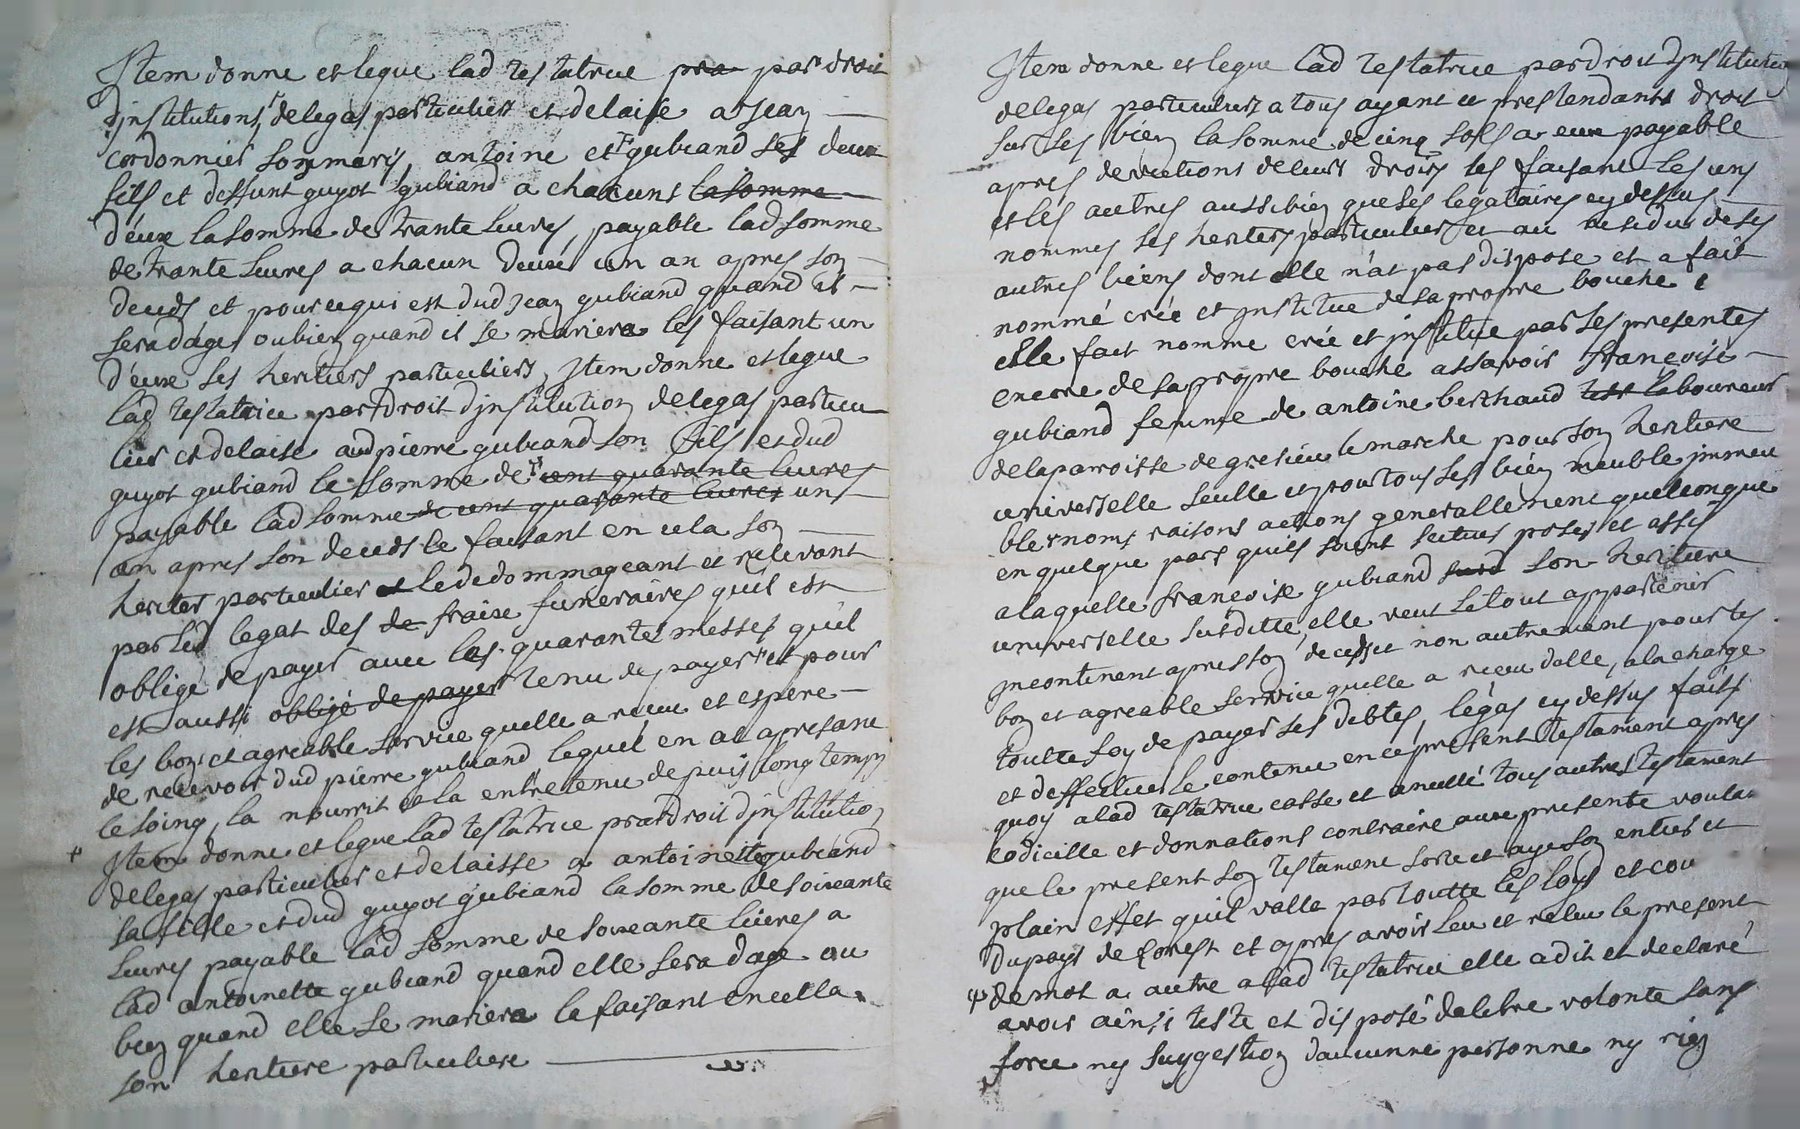 Jtem donne et legue lad testatrice pra par droit
djnstitutions de legas particuliers et delaise a Jean
cordonnier son marÿ, antoine et gubiand ses deux
fils et deffunt guyot gubiand a chacuns la somme
d'eux la somme de trante livres, payable lad somme
de trante livres a chacun deux un an apres son
deceds et pour ce qui est dud jean gubiand quand il
sera dâge, ou bien quand il se mariera les faisant un
d'eux ses heritiers particuliers, Jtem donne et legue
lad testatrice par droit djnstitution de legas particu
lier et delaise aud pierre gubiand son fils et dud
guyot gubiand le somme de cent quarante livres
payable lad somme de cent quarante livres uns
an apres son deceds le faisant en cela son
heritier particulier et le dedommageant et relevant
par led legat des de fraise funeraires quil est
oblige de payer avec les quarantes messes qu'il
est aussi obligé de payer tenu de payer et pour
les bons et agreable service quelle a reçeu et espere
de recevoir dud pierre gubiand lequel en a apresant
le soing, la nourrit et la entretenu depuis long temps
Jtem donne et legue lad testatrice par droit djnstitution
de legas particulier et delaisse a antoinette gubiand
sa fille et dud guyot gubiand la somme de soixante
livres payable lad somme de soixante livres a
lad antoinette gubiand quand elle sera dage ou
bien quand elle se mariera le faisant en cella
son heritiere particuliere
Jtem donne et legue lad testatrice par droit djnstitution
de legas particuliers a tous ayant et prestendants droit
sur ses bien la somme de cinq sols a eux payable
apres devictions de leurs droits les faisant les uns
et les autres aussi bien que ses legataires cy dessus
nommes ses heritiers particuliers et au residus de ses
autres biens dont elle n'at pas dispose et a fait
nommé crée et jnstitue de sa propre bouche
elle fait nomme crée et jnstitue par ses presentes
encore de sa propre bouche assavoir françoise
gubiand femme de antoine berthaud laboureur
de la parroisse de gresieu le marche pour son heritiere
universelle seulle et pour tous ses bien meuble jmmeu
ble noms raisons actions generallement quelconque
en quelque pars quils soient scitués posés et assis
a laquelle francoise gubiand son heritiere
universelle susditte, elle veut le tout appartenir
jncontinent apres son deceds et non autrement pour les
bon et agreable service quelle a reçeu delle, a la charge
toutte foy de payer ses debtes, légas cy dessus faits
et deffectuer le contenu en ce present testament apres
quoy a lad testatrice casse et anullé tous autres testament
codicille et donnations contraire aux presente voulan
que le present son testament sorte et aye son entier et
plain effet quil valle par toutte les loys et cou
du pays de forest et apres avoir leu et releu le present
de mot a autre a lad testatrice elle a dit et declaré
avoir ainsi teste et disposé de libre volonte sans
force ny suggestion d'aucunne personne ny rien